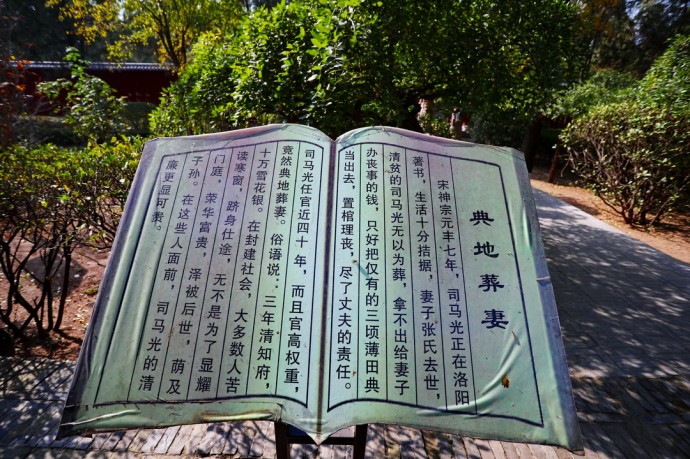 典地葬妻
宋神宗元丰七年，司马光正在洛阳
著书，生活十分拮据，妻子张氏去世，
清贫的司马光无以为葬，拿不出给妻子
办丧事的钱，只好把仅有的三顷薄田典
当出去，置棺理丧，尽了丈夫的责任。
司马光任官近四十年，而且官高权重，
竟然典地葬妻。俗语说：三年清知府，
十万雪花银。在封建社会，大多数人苦
读寒窗，跻身仕途，无不是为了显耀
门庭，荣华富贵，泽被后世，荫及
子孙。在这些人面前，司马光的清
廉更显可贵。